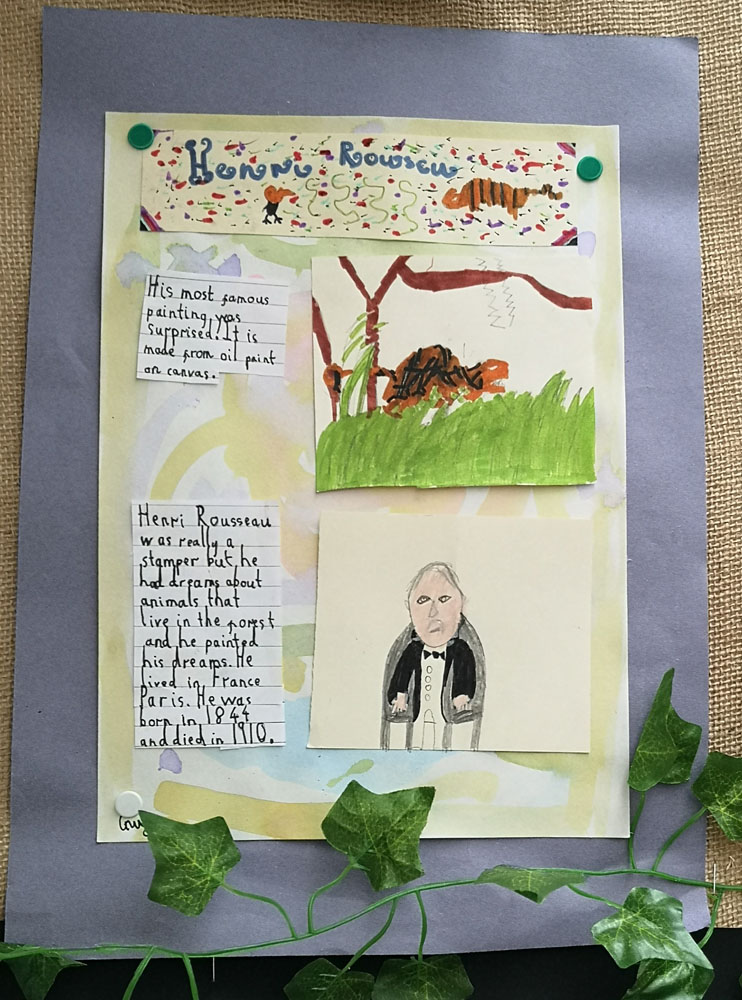 Henri Rowseu
His most famous
painting was
Surprised! It is
made from oil paint
on canvas.
Henri Rousseau
was really a
stamper but he
had dreams about
animals that
live in the forest
and he painted
his dreams. He
lived in France
Paris. He was
born in 1844
and died in 1910.